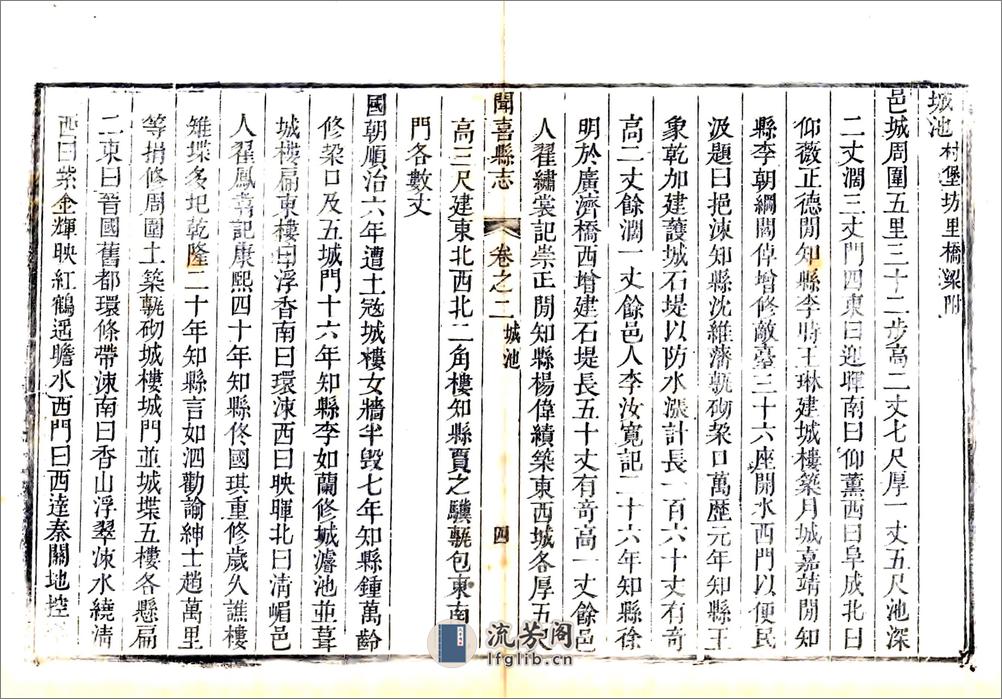 城池 村堡坊里橋梁附
邑城周圍五里三十二步高二丈七尺厚一丈五尺池深
二丈濶三丈門四東曰迎暉南曰仰薰西曰阜成北曰
仰薇正德間知縣李時王琳建城樓築月城嘉靖間知
縣李朝綱閻倬增修敵臺三十六座開水西門以便民
汲題曰挹涑知縣沈維藩甎砌垜口萬歷元年知縣王
象乾加建護城石堤以防水漲計長一百六十丈有奇
高二丈餘濶一丈餘邑人李汝寬記二十六年知縣徐
明於廣濟橋西增建石堤長五十丈有奇高一丈餘邑
人翟繡裳記崇正間知縣楊偉績築東西城各厚五
聞喜縣志 卷之二 城池 四
高三尺建東北西北二角樓知縣賈之驥甎包東南
門各數丈
國朝順治六年遭土寇城樓女牆半毀七年知縣鍾萬齡
修垜口及五城門十六年知縣李如蘭修城濬池並葺
城樓扁東樓曰浮香南曰環涑西曰映暉北曰清嵋邑
人翟鳳翥記康熙四十年知縣佟國琪重修歲久譙樓
雉堞多圯乾隆二十年知縣言如泗勸諭紳士趙萬里
等捐修周圍土築甎砌城樓城門並城堞五樓各懸扁
二東曰晉國舊都環條帶涑南曰香山浮翠涑水繞清
西曰紫金輝映紅鶴遥瞻水西門曰西達秦關地控
流芳阁
lfglib.cn